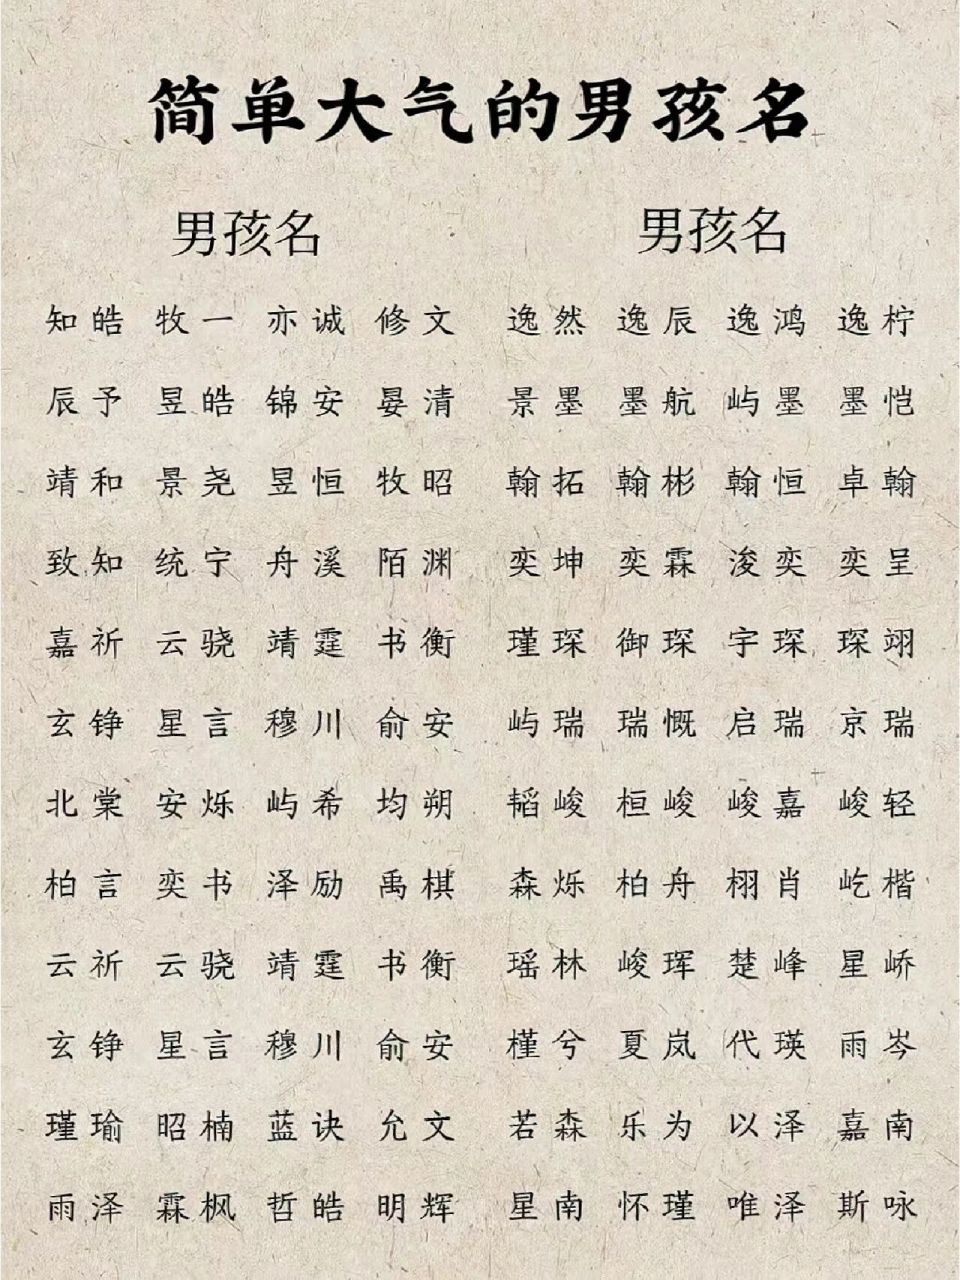 简单大气的男孩名
男孩名 男孩名
知皓 牧一 亦诚 修文 逸然 逸辰 逸鸿 逸柠
辰予 昱皓 锦安 晏清 景墨 墨航 屿墨 墨恺
靖和 景尧 昱恒 牧昭 翰拓 翰彬 翰恒 卓翰
致知 统宁 舟溪 陌渊 奕坤 奕霖 浚奕 奕呈
嘉祈 云骁 靖霆 书衡 瑾琛 御琛 宇琛 琛翊
玄铮 星言 穆川 俞安 屿瑞 瑞慨 启瑞 京瑞
北棠 安烁 屿希 均朔 韬峻 桓峻 峻嘉 峻轻
柏言 奕书 泽励 禹棋 森烁 柏舟 栩肖 屹楷
云祈 云骁 靖霆 书衡 瑶林 峻珲 楚峰 星峤
玄铮 星言 穆川 俞安 槿兮 夏岚 代瑛 雨岑
瑾瑜 昭楠 蓝诀 允文 若森 乐为 以泽 嘉南
雨泽 霖枫 哲皓 明辉 星南 怀瑾 唯泽 斯咏